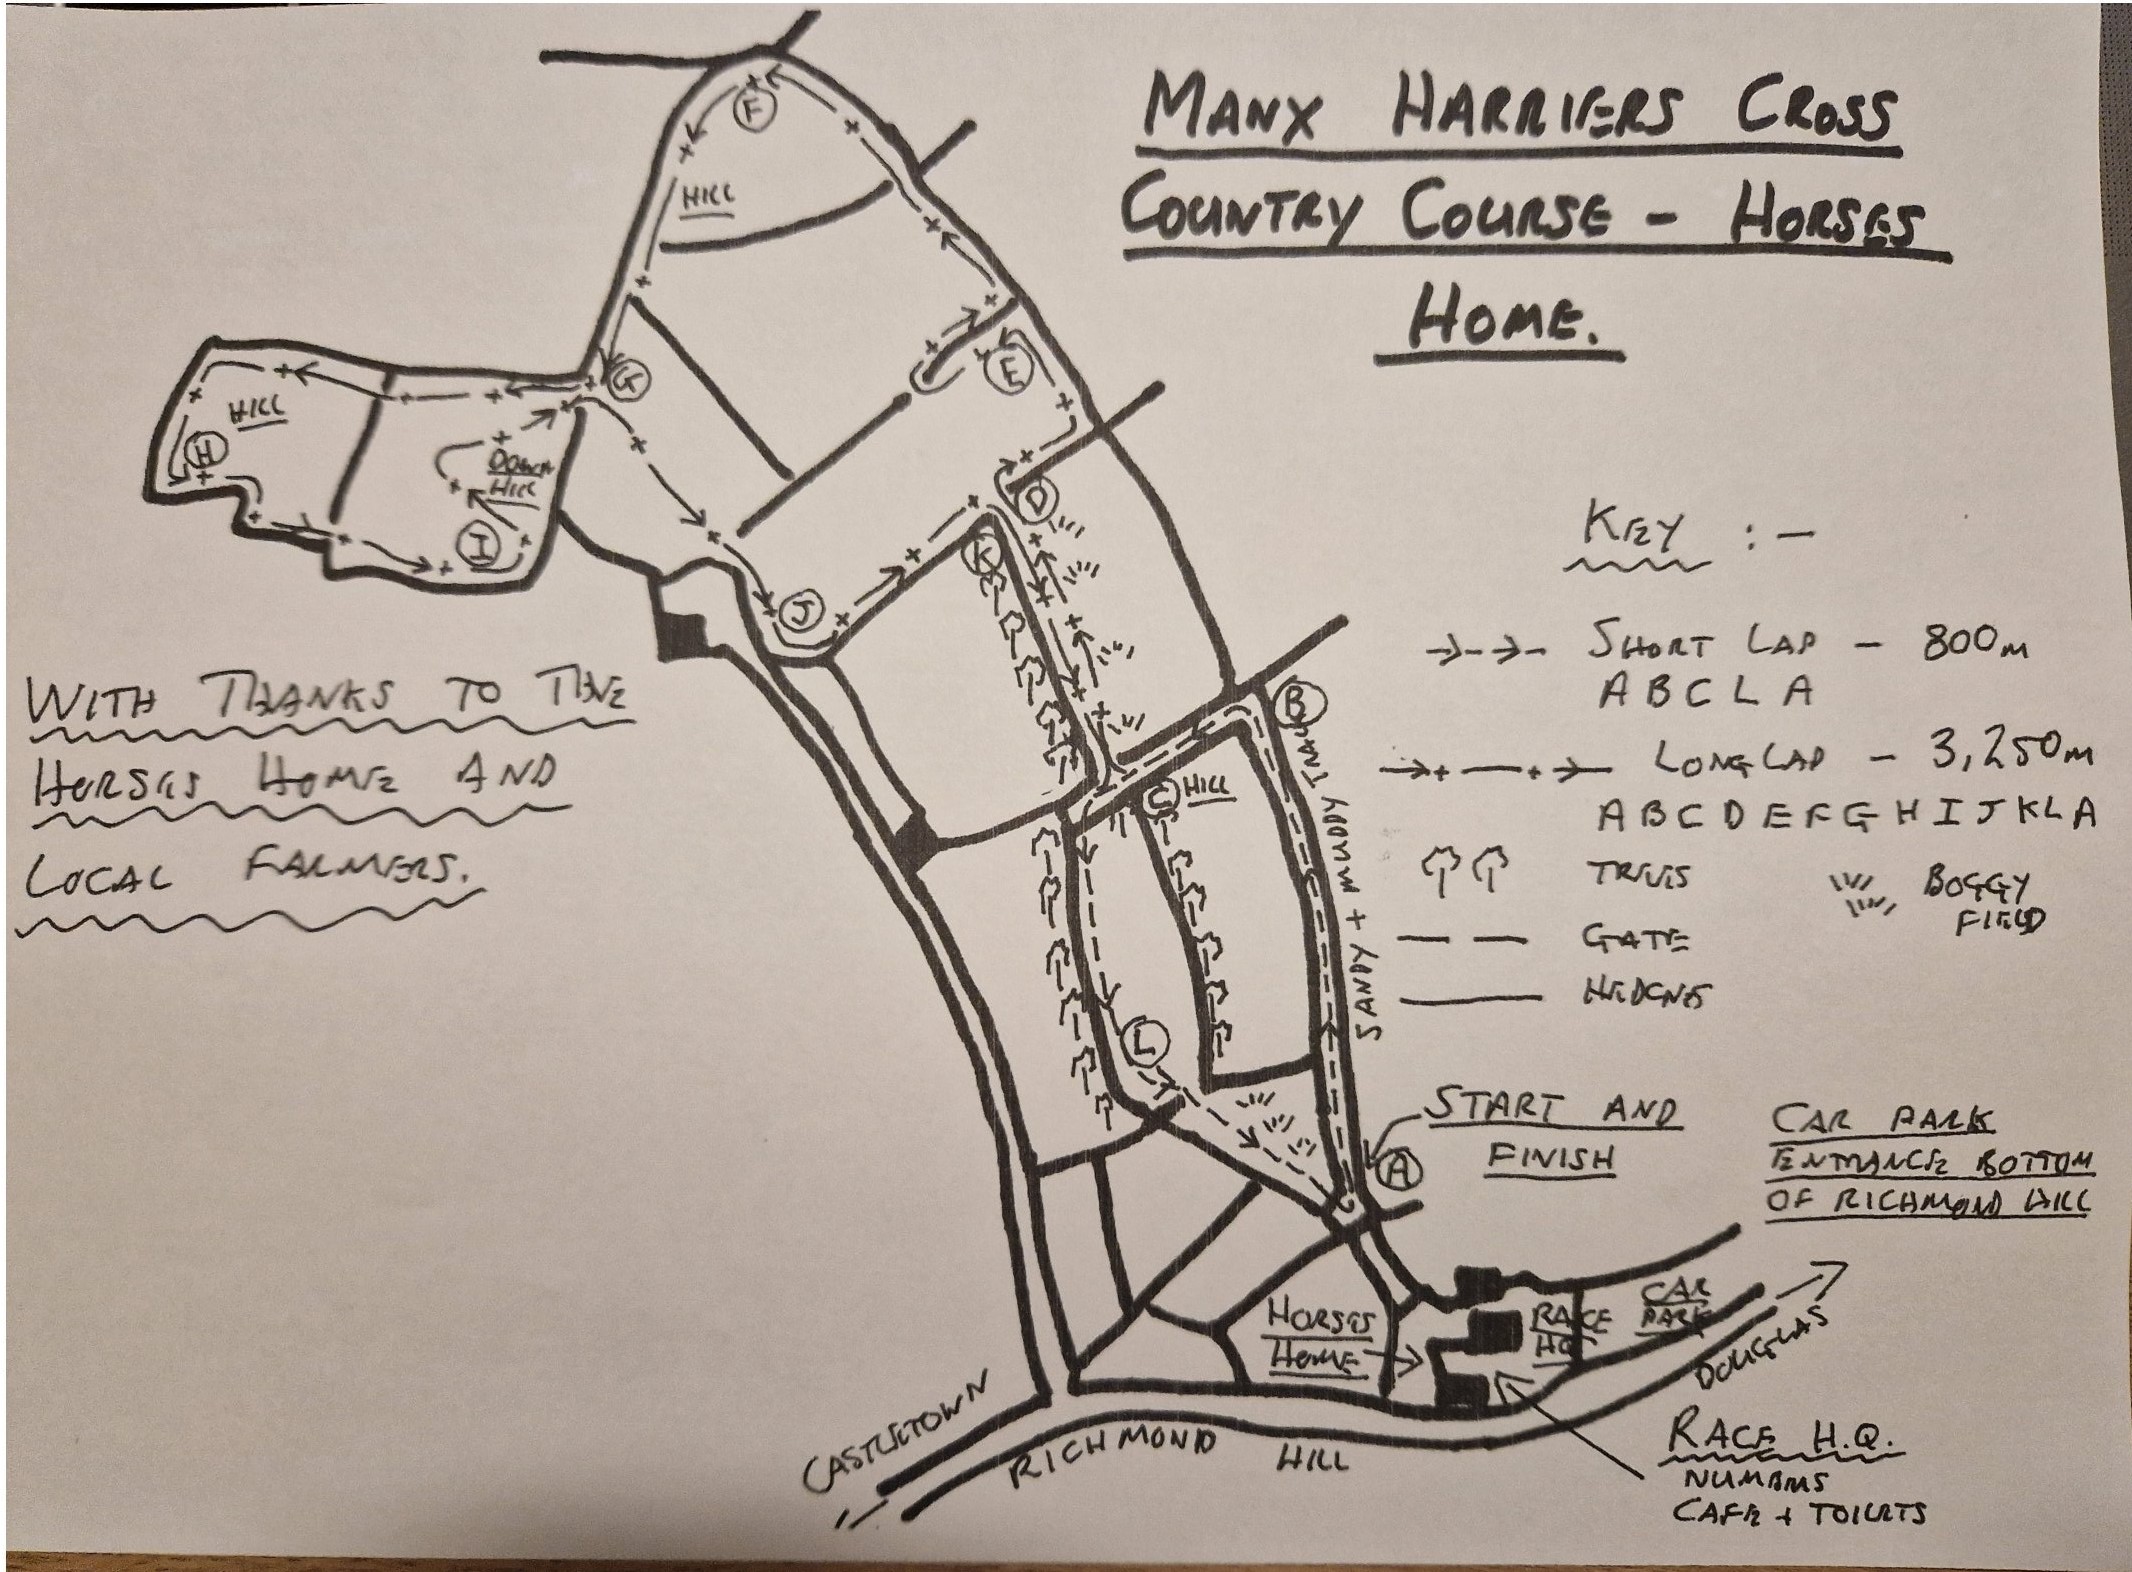 MANX HARRIERS CROSS
COUNTRY COURSE - HORSES
HOME.
F
HILL
E
G
HILL
H
DOWN
HILL
I
D
K
J
KEY :-
SHORT LAP - 800m
A B C L A
LONG LAP - 3,250m
A B C D E F G H I J K L A
TREES
BOGGY
FIELD
GATE
HEDGES
WITH THANKS TO THE
HORSES HOME AND
LOCAL FARMERS.
B
C
HILL
SANDY + MUDDY LANE
L
START AND
FINISH
A
CAR PARK
ENTRANCE BOTTOM
OF RICHMOND HILL
HORSES
HOME
RACE
HQ
CAR
PARK
DOUGLAS
CASTLETOWN
RICHMOND HILL
RACE H.Q.
NUMBERS
CAFE + TOILETS